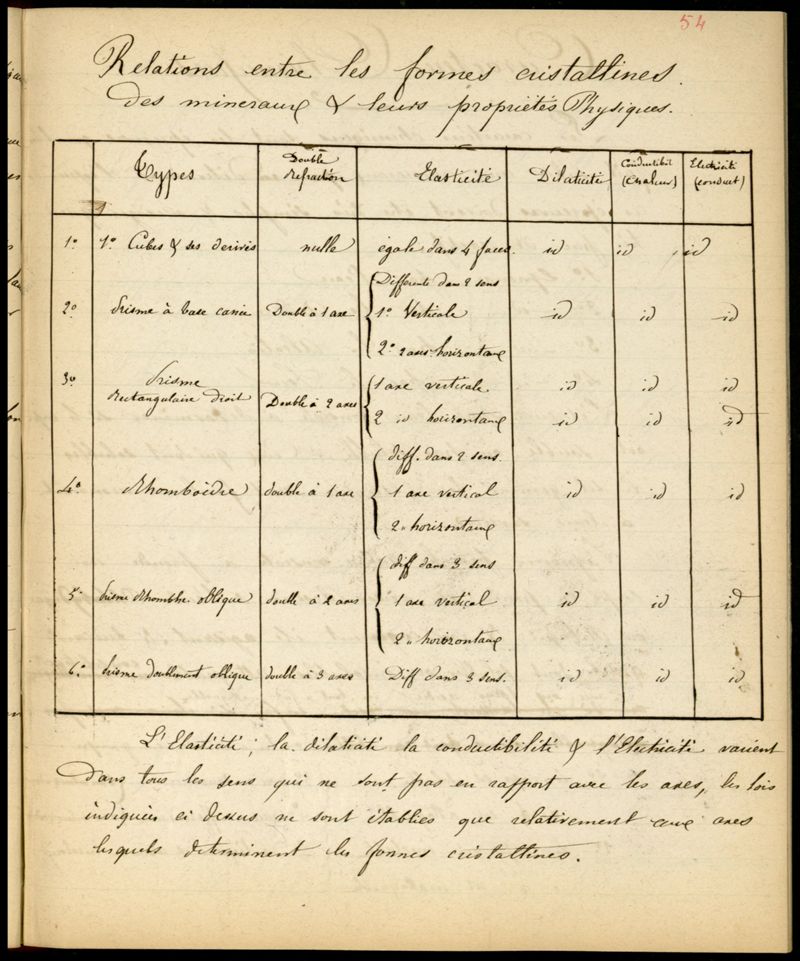 54
Relations entre les formes cristallines.
des mineraux & leurs propriétés Physiques.
Types
Double Refraction
Elasticité
Dilaticité
Conductibit (Chaleur)
Electricité (conduct)
1º 1º Cubes & ses derivés nulle égale dans 4 faces. id id id
Differente dans 2 sens
2º Prisme à base carrée Double à 1 axe 1º Verticale id id id
2º 2 axes horizontaux
3º Prisme 1 axe verticale id id id
Rectangulaire droit Double à 2 axes 2 id horizontaux id id id
diff. dans 2 sens.
4º Rhomboèdre double à 1 axe 1 axe vertical id id id
2 " horizontaux
diff dans 3 sens
5º Prisme Rhombhe. oblique double à 2 axes 1 axe vertical id id id
2 " horizontaux
6º Prisme doublement oblique double à 3 axes Diff dans 3 sens. id id id
L'Elasticité, la dilaticité la conductibilité & l'Electricité varient
dans tous les sens qui ne sont pas en rapport avec les axes, les lois
indiquées ci dessus ne sont établies que relativement aux axes
lesquels déterminent les formes cristallines.